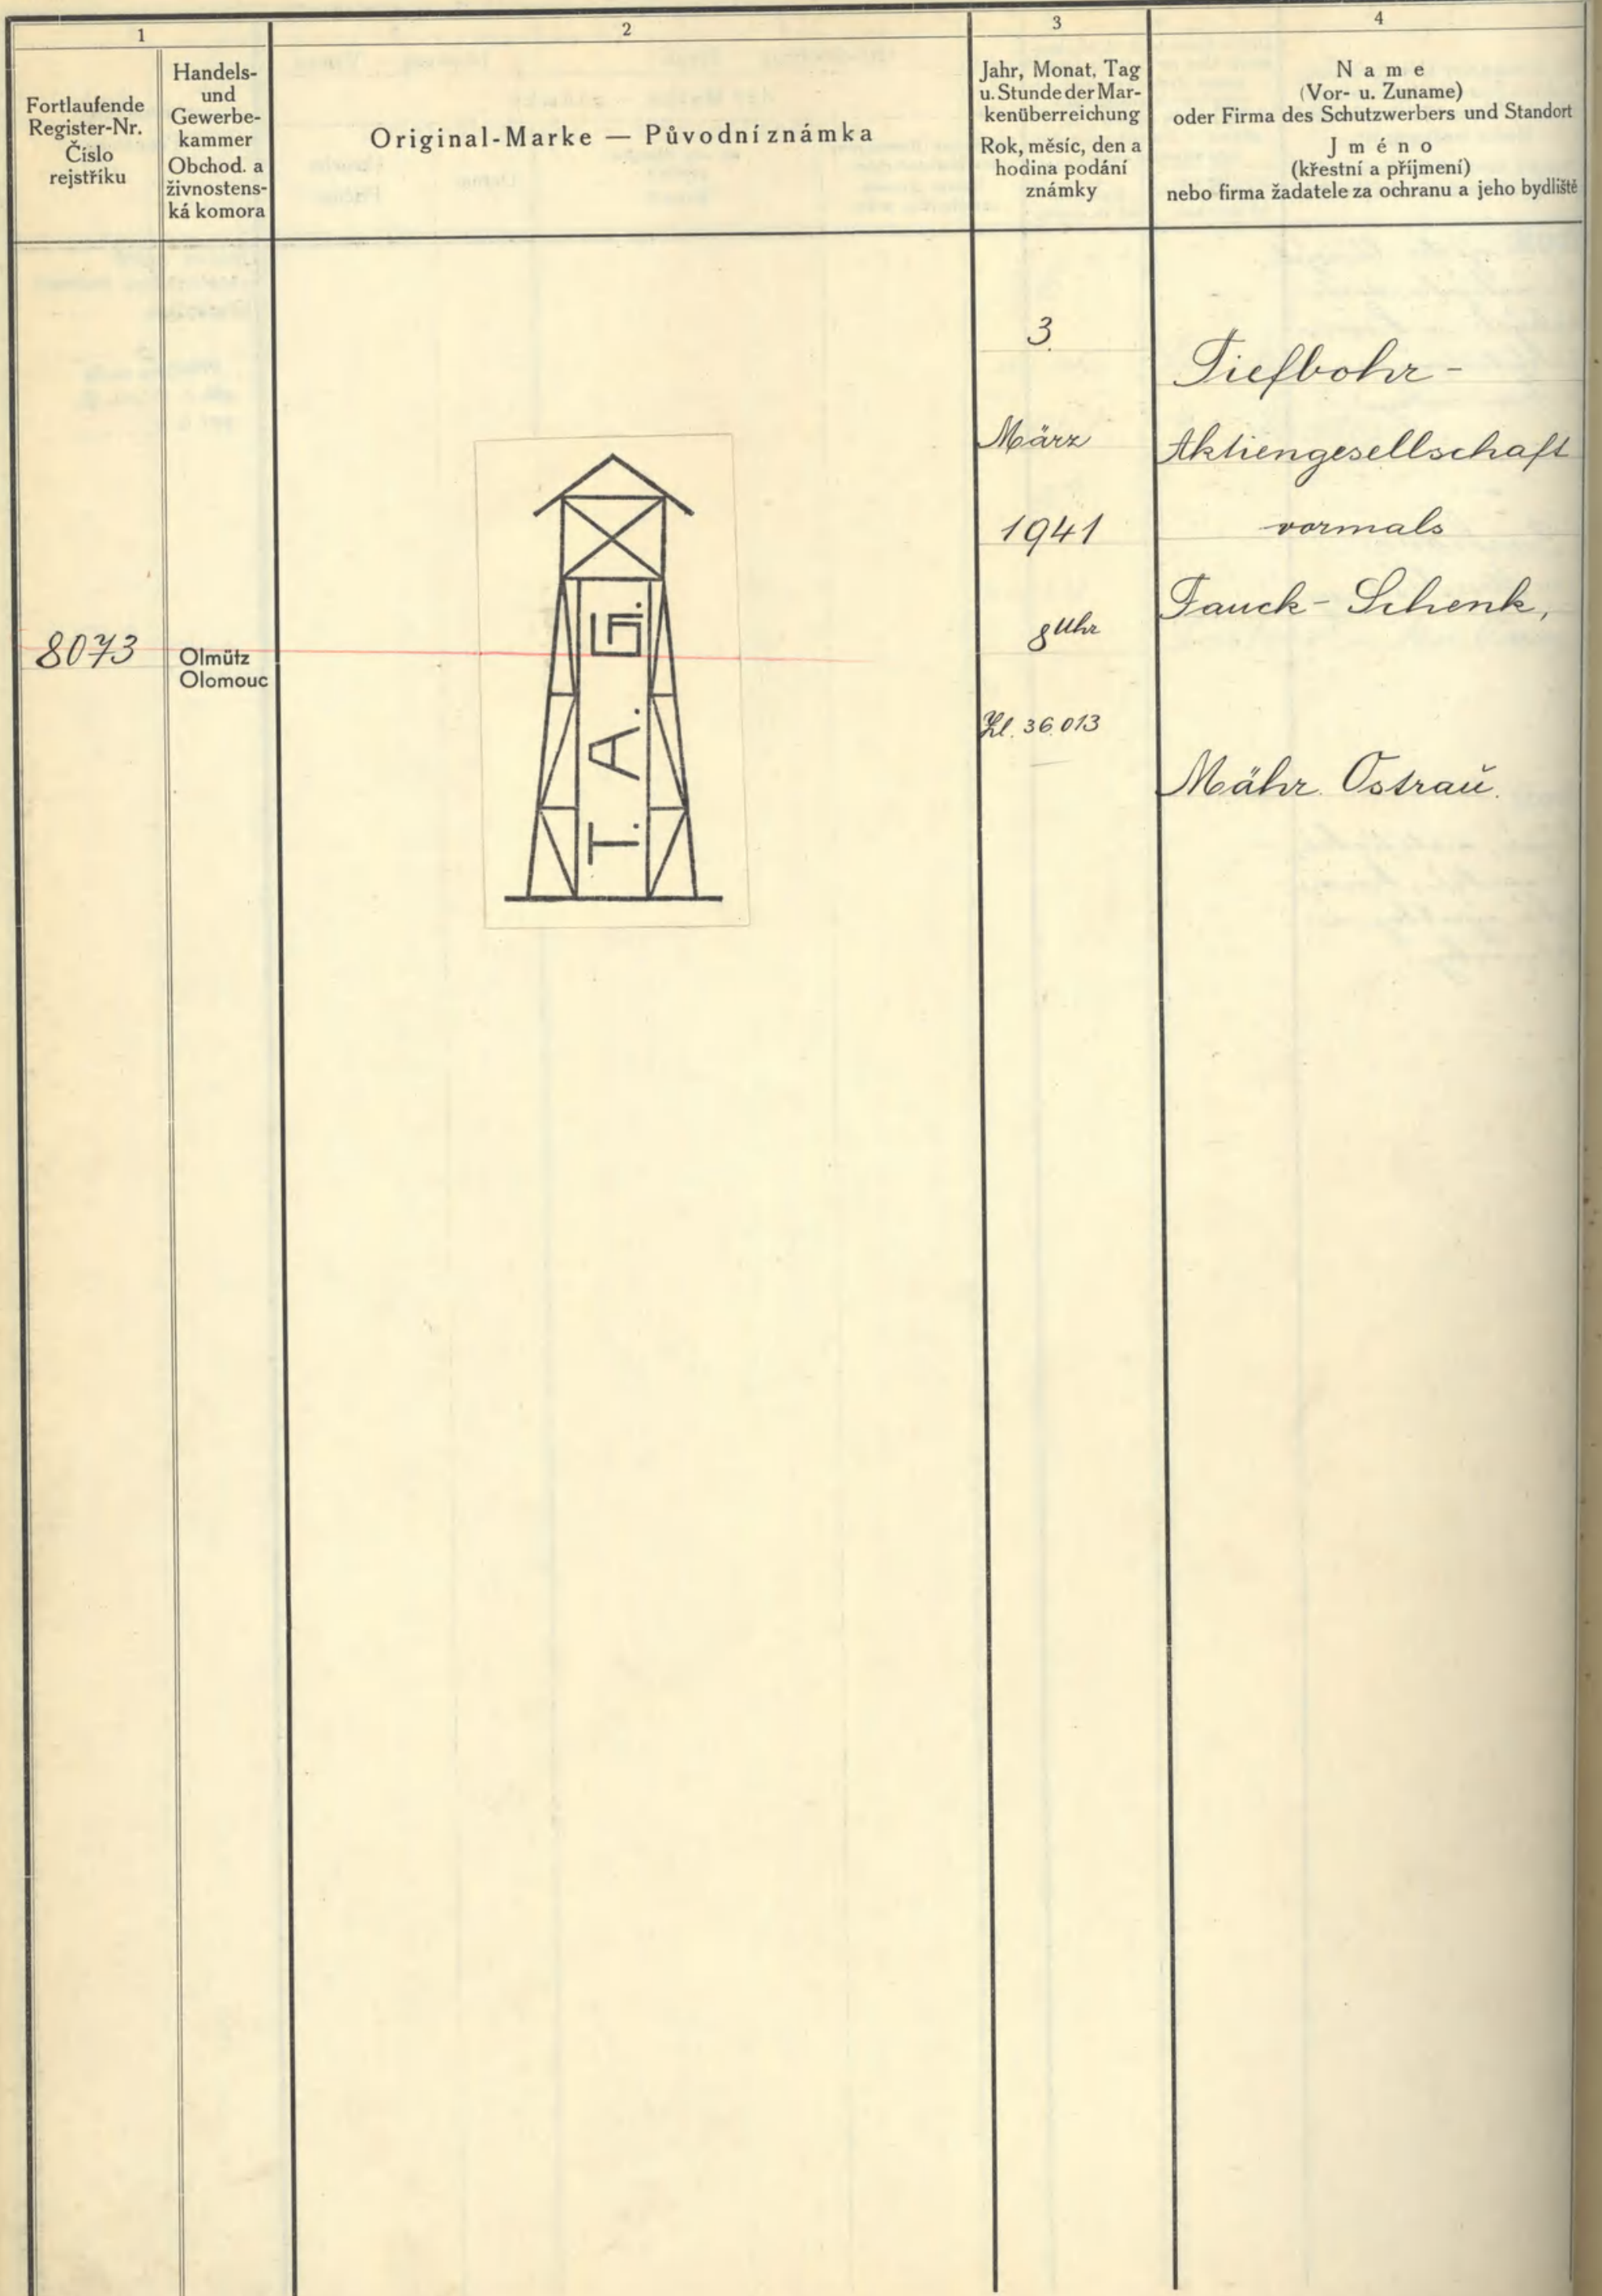 1
Fortlaufende
Register-Nr.
Číslo
rejstříku
Handels-
und
Gewerbe-
kammer
Obchod. a
živnostens-
ká komora
2
Original-Marke — Původní známka
3
Jahr, Monat, Tag
u. Stunde der Mar-
kenüberreichung
Rok, měsíc, den a
hodina podání
známky
4
Name
(Vor- u. Zuname)
oder Firma des Schutzwerbers und Standort
Jméno
(křestní a příjmení)
nebo firma žadatele za ochranu a jeho bydliště
8073
Olmütz
Olomouc
T. A. G.
3.
März
1941
8 Uhr
Zl. 36.013
Tiefbohr-
Aktiengesellschaft
vormals
Fauck-Schenk,
Mähr. Ostrau.